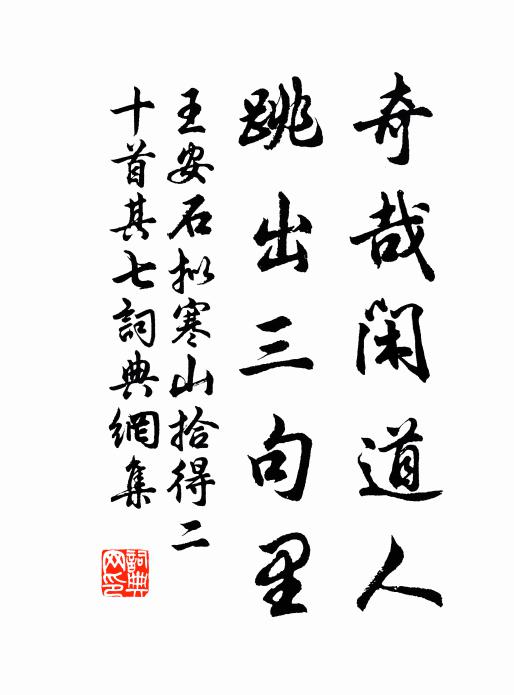 奇哉閑道人
跳出三句里
王安石拟寒山拾得二
十首其七詞典網集
詞典
网印